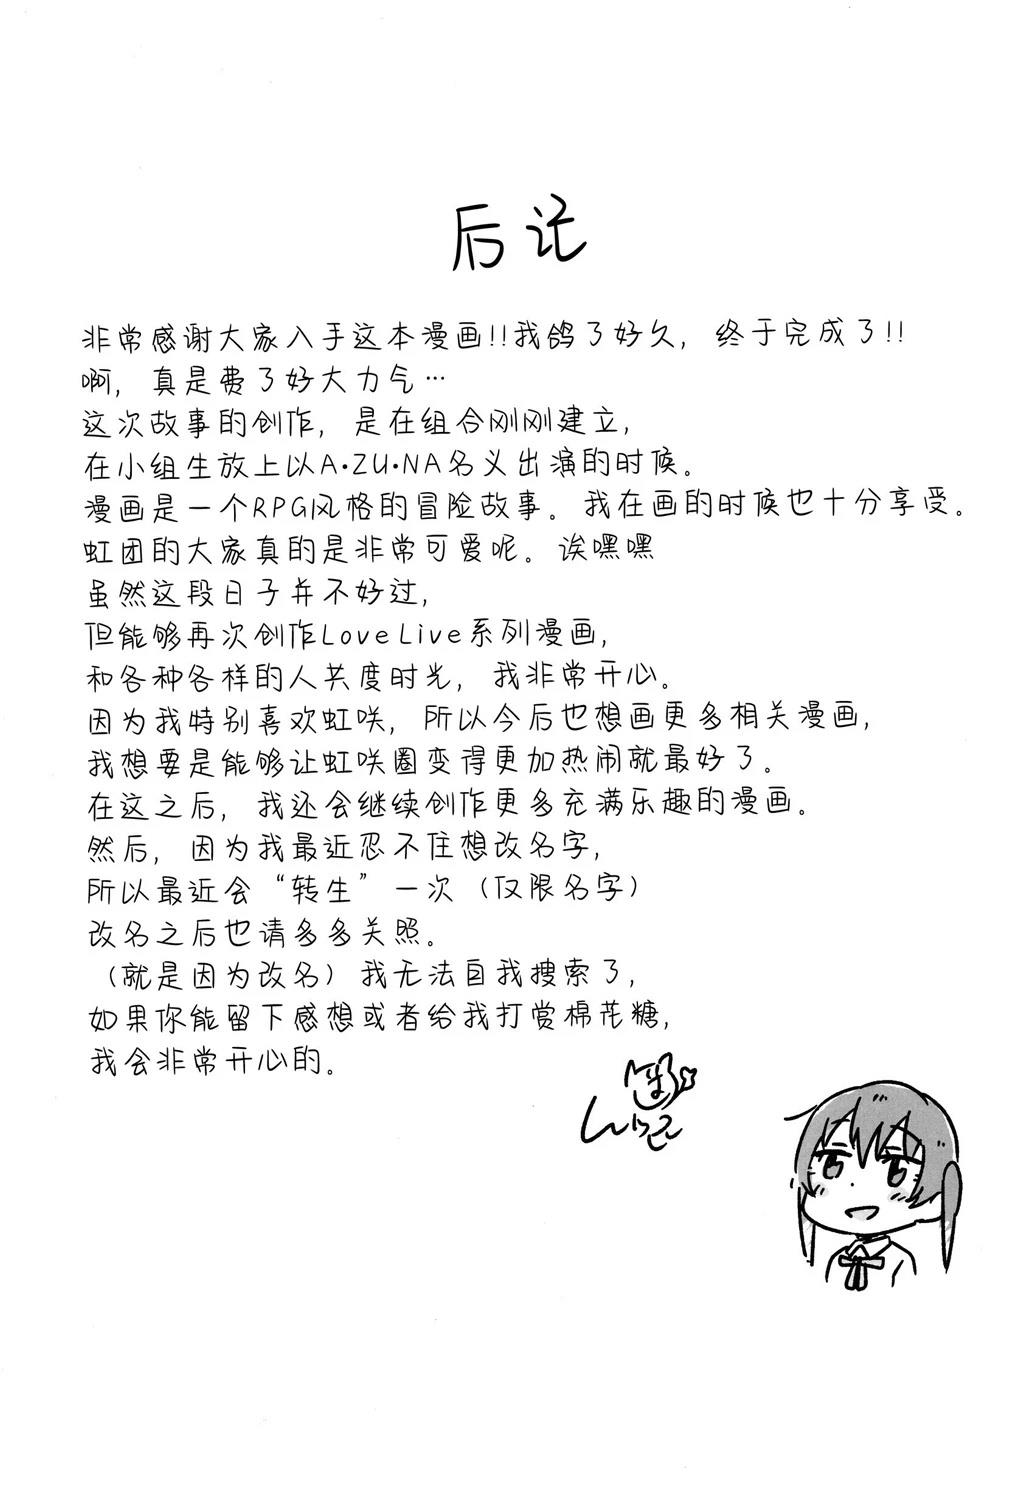 后记
非常感谢大家入手这本漫画!!我鸽了好久，终于完成了!!
啊，真是费了好大力气…
这次故事的创作，是在组合刚刚建立，
在小组生放上以A·ZU·NA名义出演的时候。
漫画是一个RPG风格的冒险故事。我在画的时候也十分享受。
虹团的大家真的是非常可爱呢。诶嘿嘿
虽然这段日子并不好过，
但能够再次创作LoveLive系列漫画，
和各种各样的人共度时光，我非常开心。
因为我特别喜欢虹咲，所以今后也想画更多相关漫画，
我想要是能够让虹咲圈变得更加热闹就最好了。
在这之后，我还会继续创作更多充满乐趣的漫画。
然后，因为我最近忍不住想改名字，
所以最近会“转生”一次（仅限名字）
改名之后也请多多关照。
（就是因为改名）我无法自我搜索了，
如果你能留下感想或者给我打赏棉花糖，
我会非常开心的。